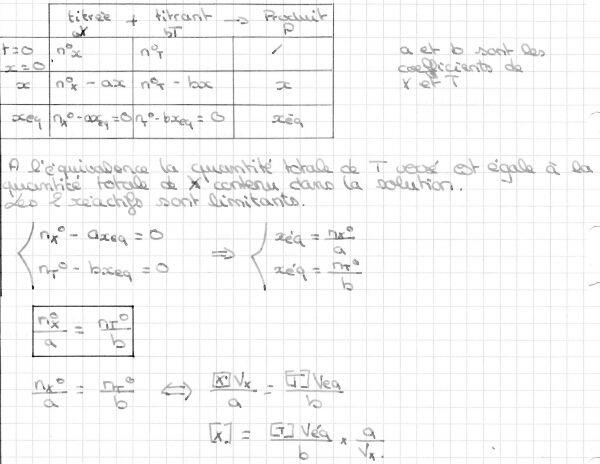 titrée + titrant → Produit
aX bT P
t=0 x=0 n°x n°T /
x n°x - ax n°T - bx x
xéq nx° - axeq = 0 nT° - bxeq = 0 xéq
a et b sont les
coefficients de
X et T
A l'équivalence la quantité totale de T versé est égale à la
quantité totale de X contenu dans la solution.
Les 2 réactifs sont limitants.
nx° - axeq = 0 ⇒ xéq = nx°/a
nT° - bxeq = 0 xéq = nT°/b
nx°/a = nT°/b
nx°/a = nT°/b ⇔ [X]Vx/a = [T]Véq/b
[X] = [T] Véq/b × a/Vx.